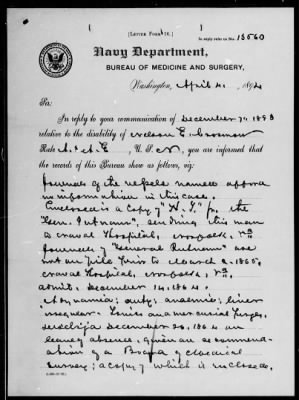 [LETTER FORM
In reply refer to No. 13560
Navy Department,
BUREAU OF MEDICINE AND SURGERY,
Washington, April 4, 1894
Sir:
In reply to your communication of December 7, 1893
relative to the disability of Nelson E.
Rate U.S.N., you are informed that
the records of this Bureau show as follows, viz:
Journals of the vessels named afford
no information in this case.
Enclosed is a copy of the
"Gen. Putnam", sending this man
to Naval Hospital, Norfolk, Va.
Journals of "General Putnam" are
not on file prior to March 2, 1865.
Naval Hospital, Norfolk, Va.
admit. December 14, 1864.
duty; anaemic; liver
Tonics and mercurial
December 29, 1864 on
leave of absence, given on recommend-
ation of a Board of Medical
Survey; a copy of which is enclosed.